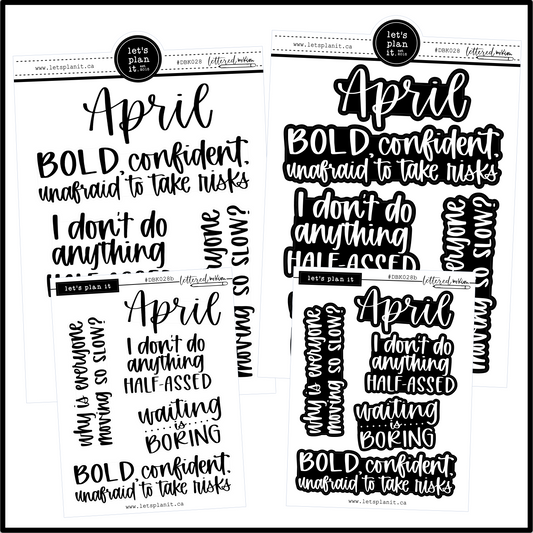 let's
plan
it.
EST
2015
www.letsplanit.ca
#DBK028
lettered
April
BOLD, confident,
unafraid to take risks
I don't do
anything
HALF-ASSED
everyone
moving so slow?
let's
plan
it.
EST
2015
www.letsplanit.ca
#DBK028
lettered
April
BOLD, confident,
unafraid to take risks
I don't do
anything
HALF-ASSED
everyone
moving so slow?
let's plan it
#DBK028b
lettered
April
why is everyone
moving so slow?
I don't do
anything
HALF-ASSED
waiting
is
BORING
BOLD, confident,
unafraid to take risks
www.letsplanit.ca
let's plan it
#DBK028b
lettered
April
why is everyone
moving so slow?
I don't do
anything
HALF-ASSED
waiting
is
BORING
BOLD, confident,
unafraid to take risks
www.letsplanit.ca